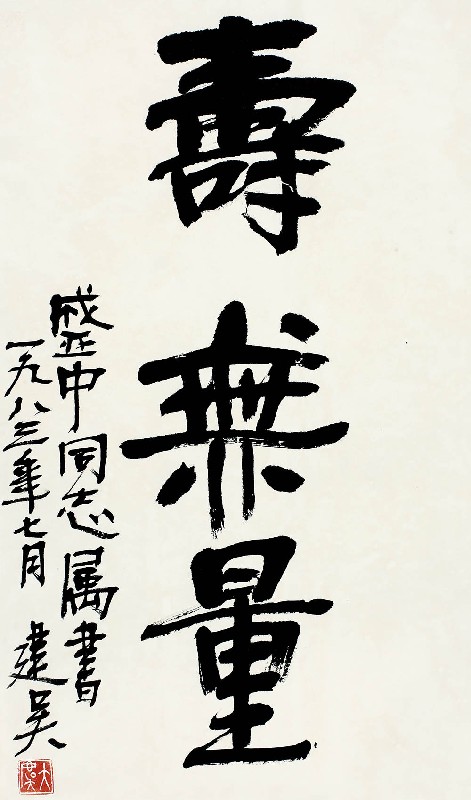 壽無量
中同志属書
一九八三年七月 建吴